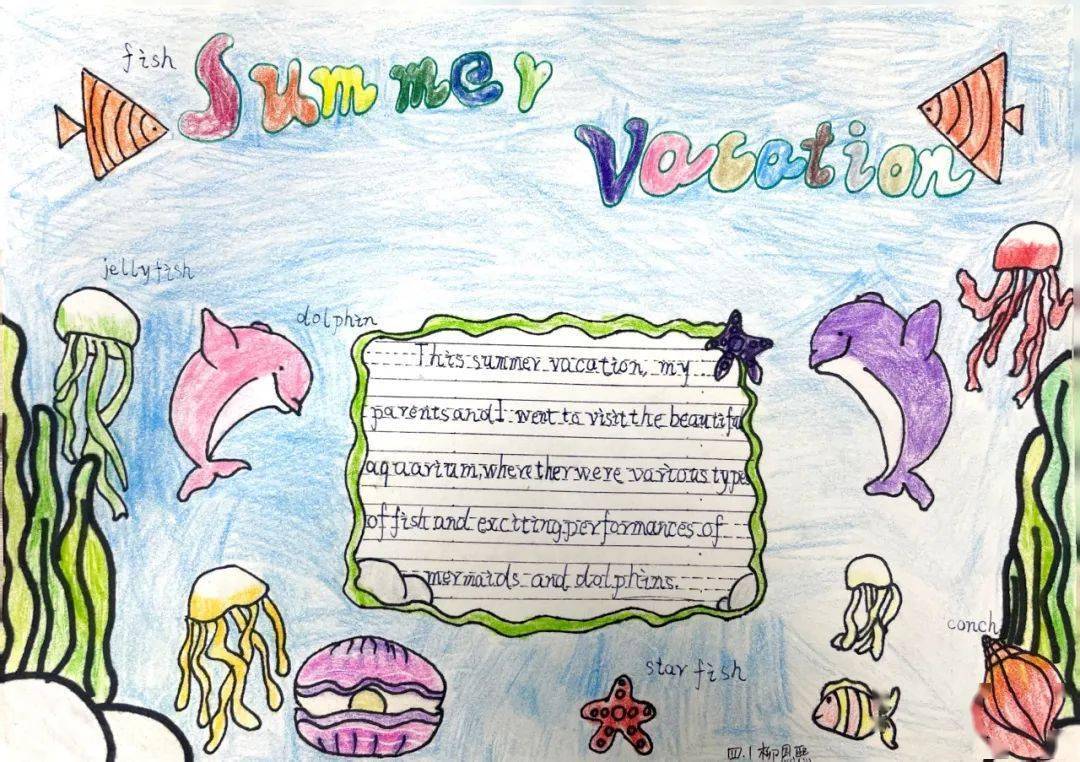 fish
Summer
Vacation
jellyfish
dolphin
This summer vacation, my
parents and I went to visit the beautiful
aquarium, where ther were various types
of fish and exciting performances of
mermaids and dolphins.
conch
star fish
四.1